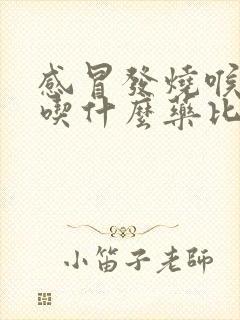 感冒發燒喉
喫什麼藥比
小笛子老師